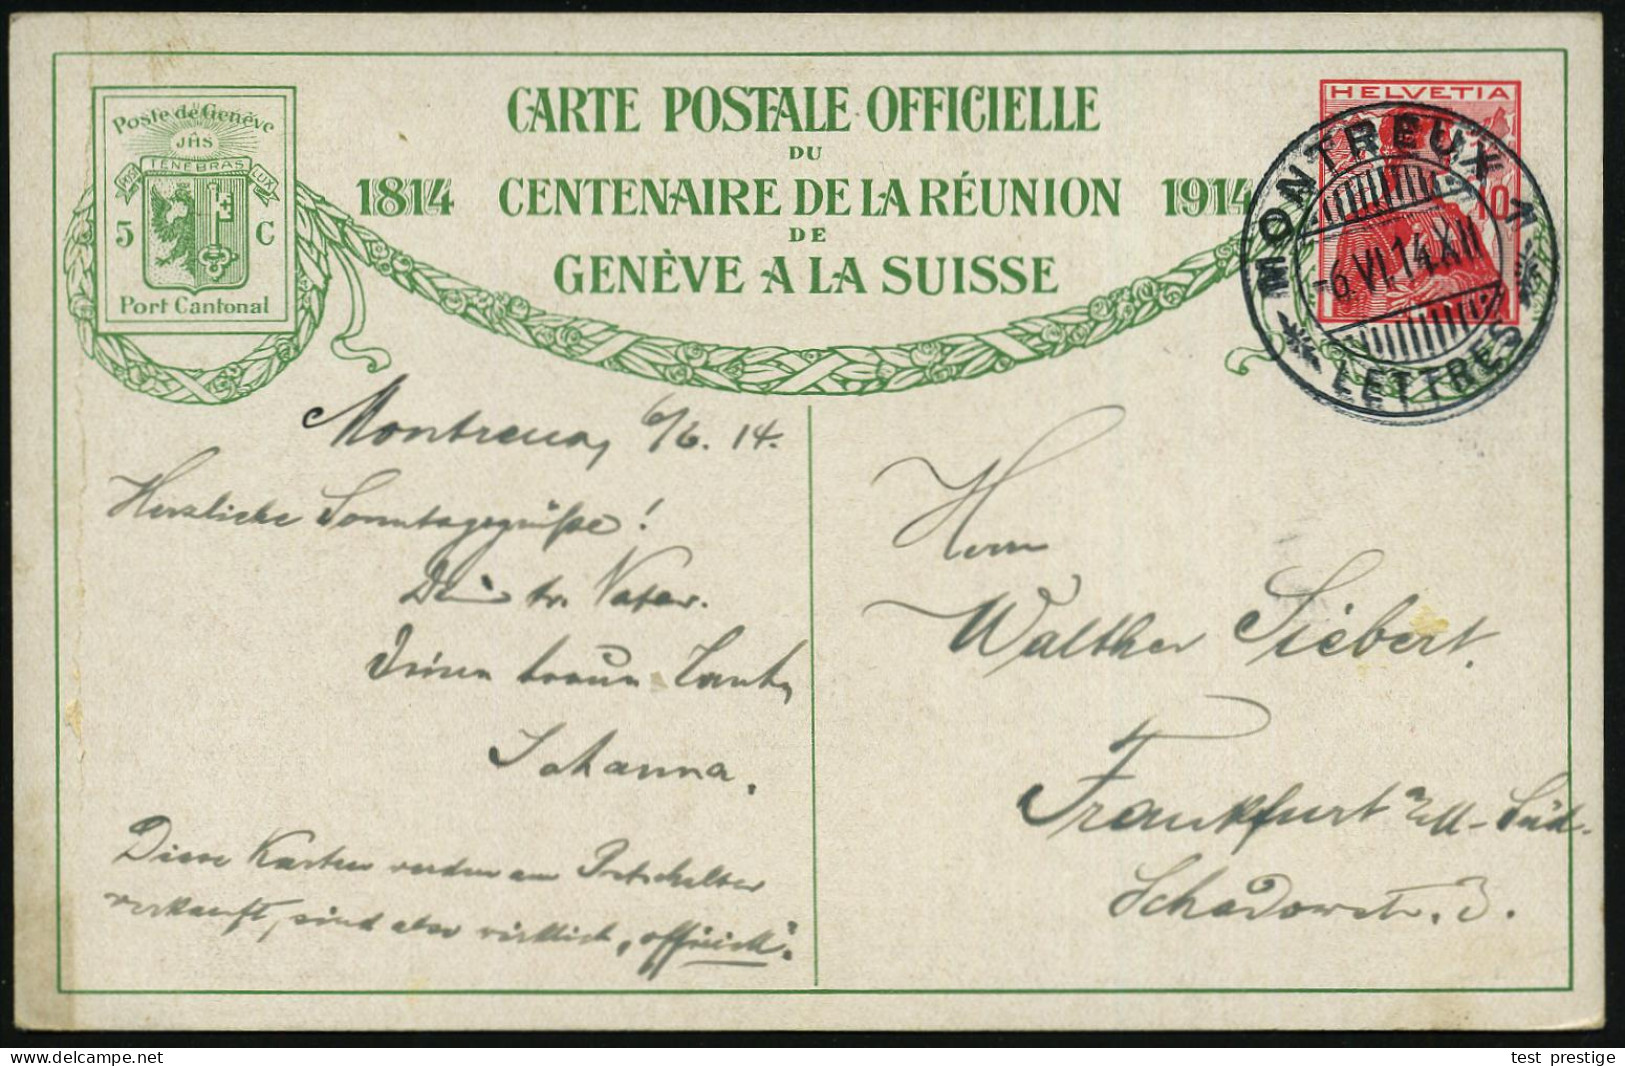 CARTE POSTALE OFFICIELLE
DU
1814 CENTENAIRE DE LA RÉUNION 1914
DE
GENÈVE A LA SUISSE
Poste de Genève
JHS
POST TENEBRAS LUX
5 C
Port Cantonal
HELVETIA
10
MONTREUX 1
-6.VI.14.XII
LETTRES
Montreux, 6/6. 14.
Herzliche Sonntagsgrüße!
Dein tr. Vater.
Deine treue Tante
Johanna.
Diese Karten werden am Postschalter
verkauft, sind also wirklich „offiziell".
Herrn
Walther Siebert.
Frankfurt a/M-Süd.
Schadowstr. 3.
test prestige